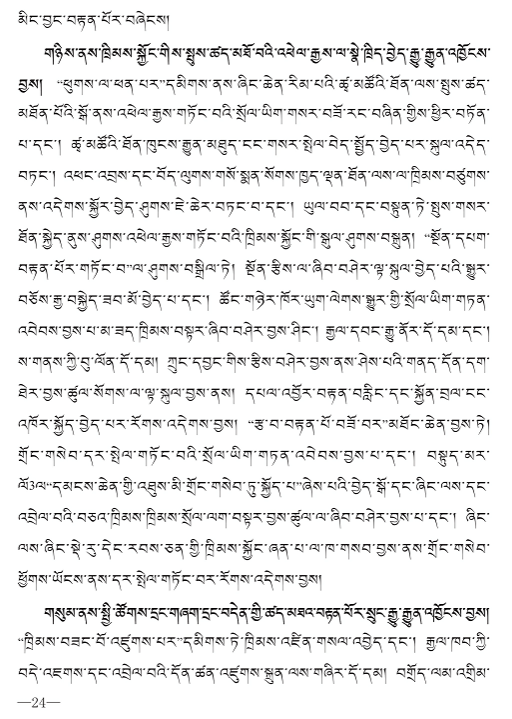 མིང་བྱང་བརྟན་པོར་བཞེངས།
གཉིས་ནས་ཁྲིམས་སྐྱོང་གིས་སྤུས་ཚད་མཐོ་བའི་འཕེལ་རྒྱས་ལ་སྣེ་ཁྲིད་བྱེད་རྒྱུ་རྒྱུན་འཁྱོངས་
བྱས། “ཕུགས་ལ་ཕན་པར”དམིགས་ནས་ཞིང་ཆེན་རིམ་པའི་ཚྭ་མཚོའི་ཐོན་ལས་སྤུས་ཚད་
མཐོན་པོའི་སྒོ་ནས་འཕེལ་རྒྱས་གཏོང་བའི་སྲོལ་ཡིག་གསར་བཟོ་རང་བཞིན་གྱིས་ཕྱིར་བཏོན་
པ་དང་། ཚྭ་མཚོའི་ཐོན་ཁུངས་རྒྱུན་མཐུད་ངང་གསར་སྤེལ་བེད་སྤྱོད་བྱེད་པར་སྐུལ་འདེད་
བཏང་། འཕང་འབྲས་དང་བོད་ལུགས་གསོ་སྨན་སོགས་ཁྱད་ལྡན་ཐོན་ལས་ལ་ཁྲིམས་བཙུགས་
ནས་འདེགས་སྐྱོར་བྱེད་ཤུགས་ཇེ་ཆེར་བཏང་བ་དང་། ཡུལ་བབ་དང་བསྟུན་ཏེ་སྤུས་གསར་
ཐོན་སྐྱེད་ནུས་ཤུགས་འཕེལ་རྒྱས་གཏོང་བའི་ཁྲིམས་སྐྱོང་གི་སྒུལ་ཤུགས་བསྐྲུན། “སྔོན་དཔག་
བརྟན་པོར་གཏོང་བ”ལ་ཤུགས་བསྒྲིལ་ཏེ། སྔོན་རྩིས་ལ་ཞིབ་བཤེར་ལྟ་སྐུལ་བྱེད་པའི་སྒྱུར་
བཅོས་རྒྱ་བསྐྱེད་ཟབ་མོ་བྱེད་པ་དང་། ཚོང་གཉེར་ཁོར་ཡུག་ལེགས་སྒྱུར་གྱི་སྲོལ་ཡིག་གཏན་
འབེབས་བྱས་པ་མ་ཟད་ཁྲིམས་བསྟར་ཞིབ་བཤེར་བྱས་ཤིང་། རྒྱལ་དབང་རྒྱུ་ནོར་དོ་དམ་དང་།
ས་གནས་ཀྱི་བུ་ལོན་དོ་དམ། ཀྲུང་དབྱང་གིས་རྩིས་བཤེར་བྱས་ནས་ཤེས་པའི་གནད་དོན་དག་
ཐེར་བྱས་ཚུལ་སོགས་ལ་ལྟ་སྐུལ་བྱས་ནས། དཔལ་འབྱོར་བརྟན་བརླིང་དང་སྐྱོན་བྲལ་ངང་
འཁོར་སྐྱོད་བྱེད་པར་རོགས་འདེགས་བྱས། “རྩ་བ་བརྟན་པོ་བཟོ་བར”མཐོང་ཆེན་བྱས་ཏེ།
གྲོང་གསེབ་དར་སྤེལ་གཏོང་བའི་སྲོལ་ཡིག་གཏན་འབེབས་བྱས་པ་དང་། བསྟུད་མར་
ལོ3ལ“དམངས་ཆེན་གྱི་འཐུས་མི་གྲོང་གསེབ་ཏུ་སྐྱོད་པ”ཞེས་པའི་བྱེད་སྒོ་དང་ཞིང་ལས་དང་
འབྲེལ་བའི་བཅའ་ཁྲིམས་ཁྲིམས་སྲོལ་ལག་བསྟར་བྱས་ཚུལ་ལ་ཞིབ་བཤེར་བྱས་པ་དང་། ཞིང་
ལས་ཞིང་སྡེ་རུ་དེང་རབས་ཅན་གྱི་ཁྲིམས་སྐྱོང་ཞན་པ་ལ་ཁ་གསབ་བྱས་ནས་གྲོང་གསེབ་
ཕྱོགས་ཡོངས་ནས་དར་སྤེལ་གཏོང་བར་རོགས་འདེགས་བྱས།
གསུམ་ནས་སྤྱི་ཚོགས་དྲང་གཞག་དྲང་བདེན་གྱི་ཚད་མཐའ་བརྟན་པོར་སྲུང་རྒྱུ་རྒྱུན་འཁྱོངས་བྱས།
“ཁྲིམས་བཟང་བོ་འཛུགས་པར”དམིགས་ཏེ་ཁྲིམས་འཛིན་གསལ་འབྱེད་དང་། རྒྱལ་ཁབ་ཀྱི་
བདེ་འཇགས་དང་འབྲེལ་བའི་དོན་ཚན་འཛུགས་སྐྲུན་ལས་གཞིར་དོ་དམ། བགྲོད་ལམ་འགྲིམ་
—24—